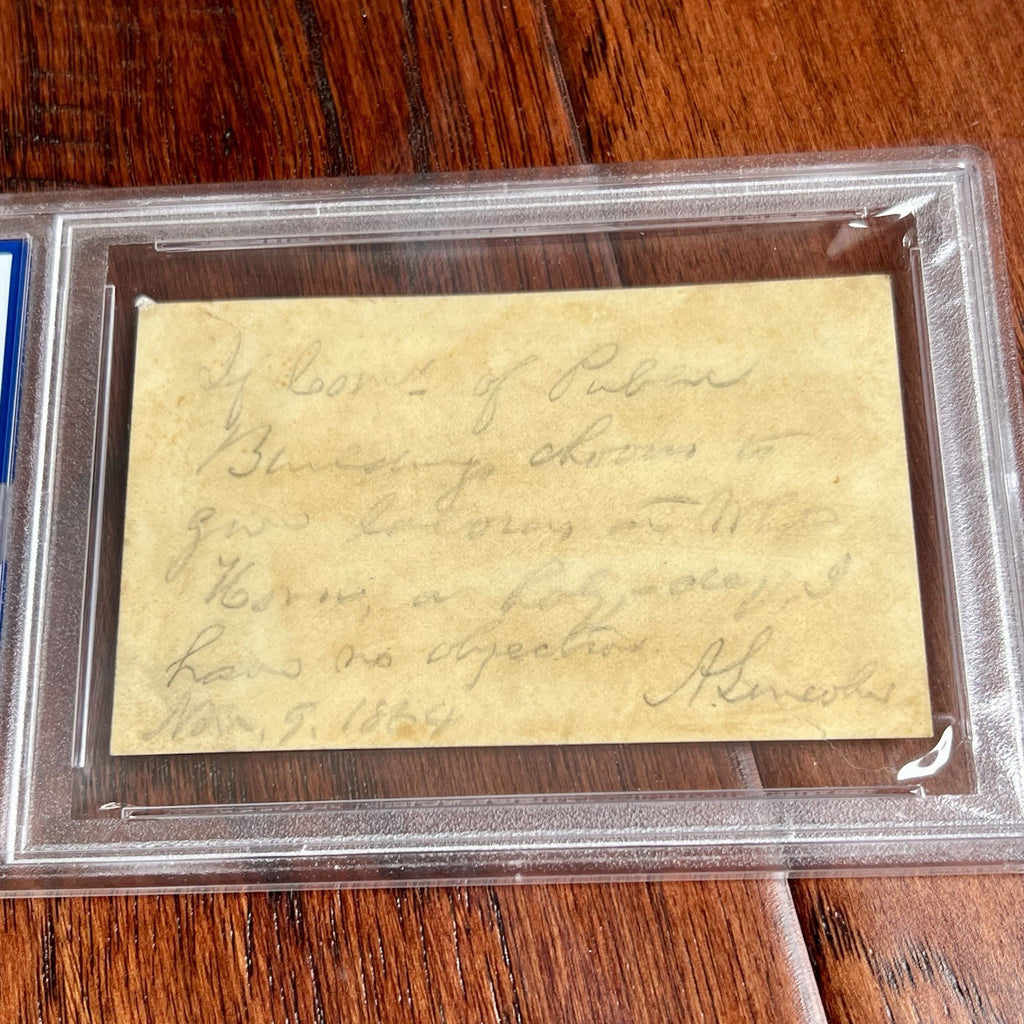 If Com.r of Public
Buildings chooses to
give laborers at White
House, a holy-day, I
have no objection.
A. Lincoln
Nov. 9. 1864